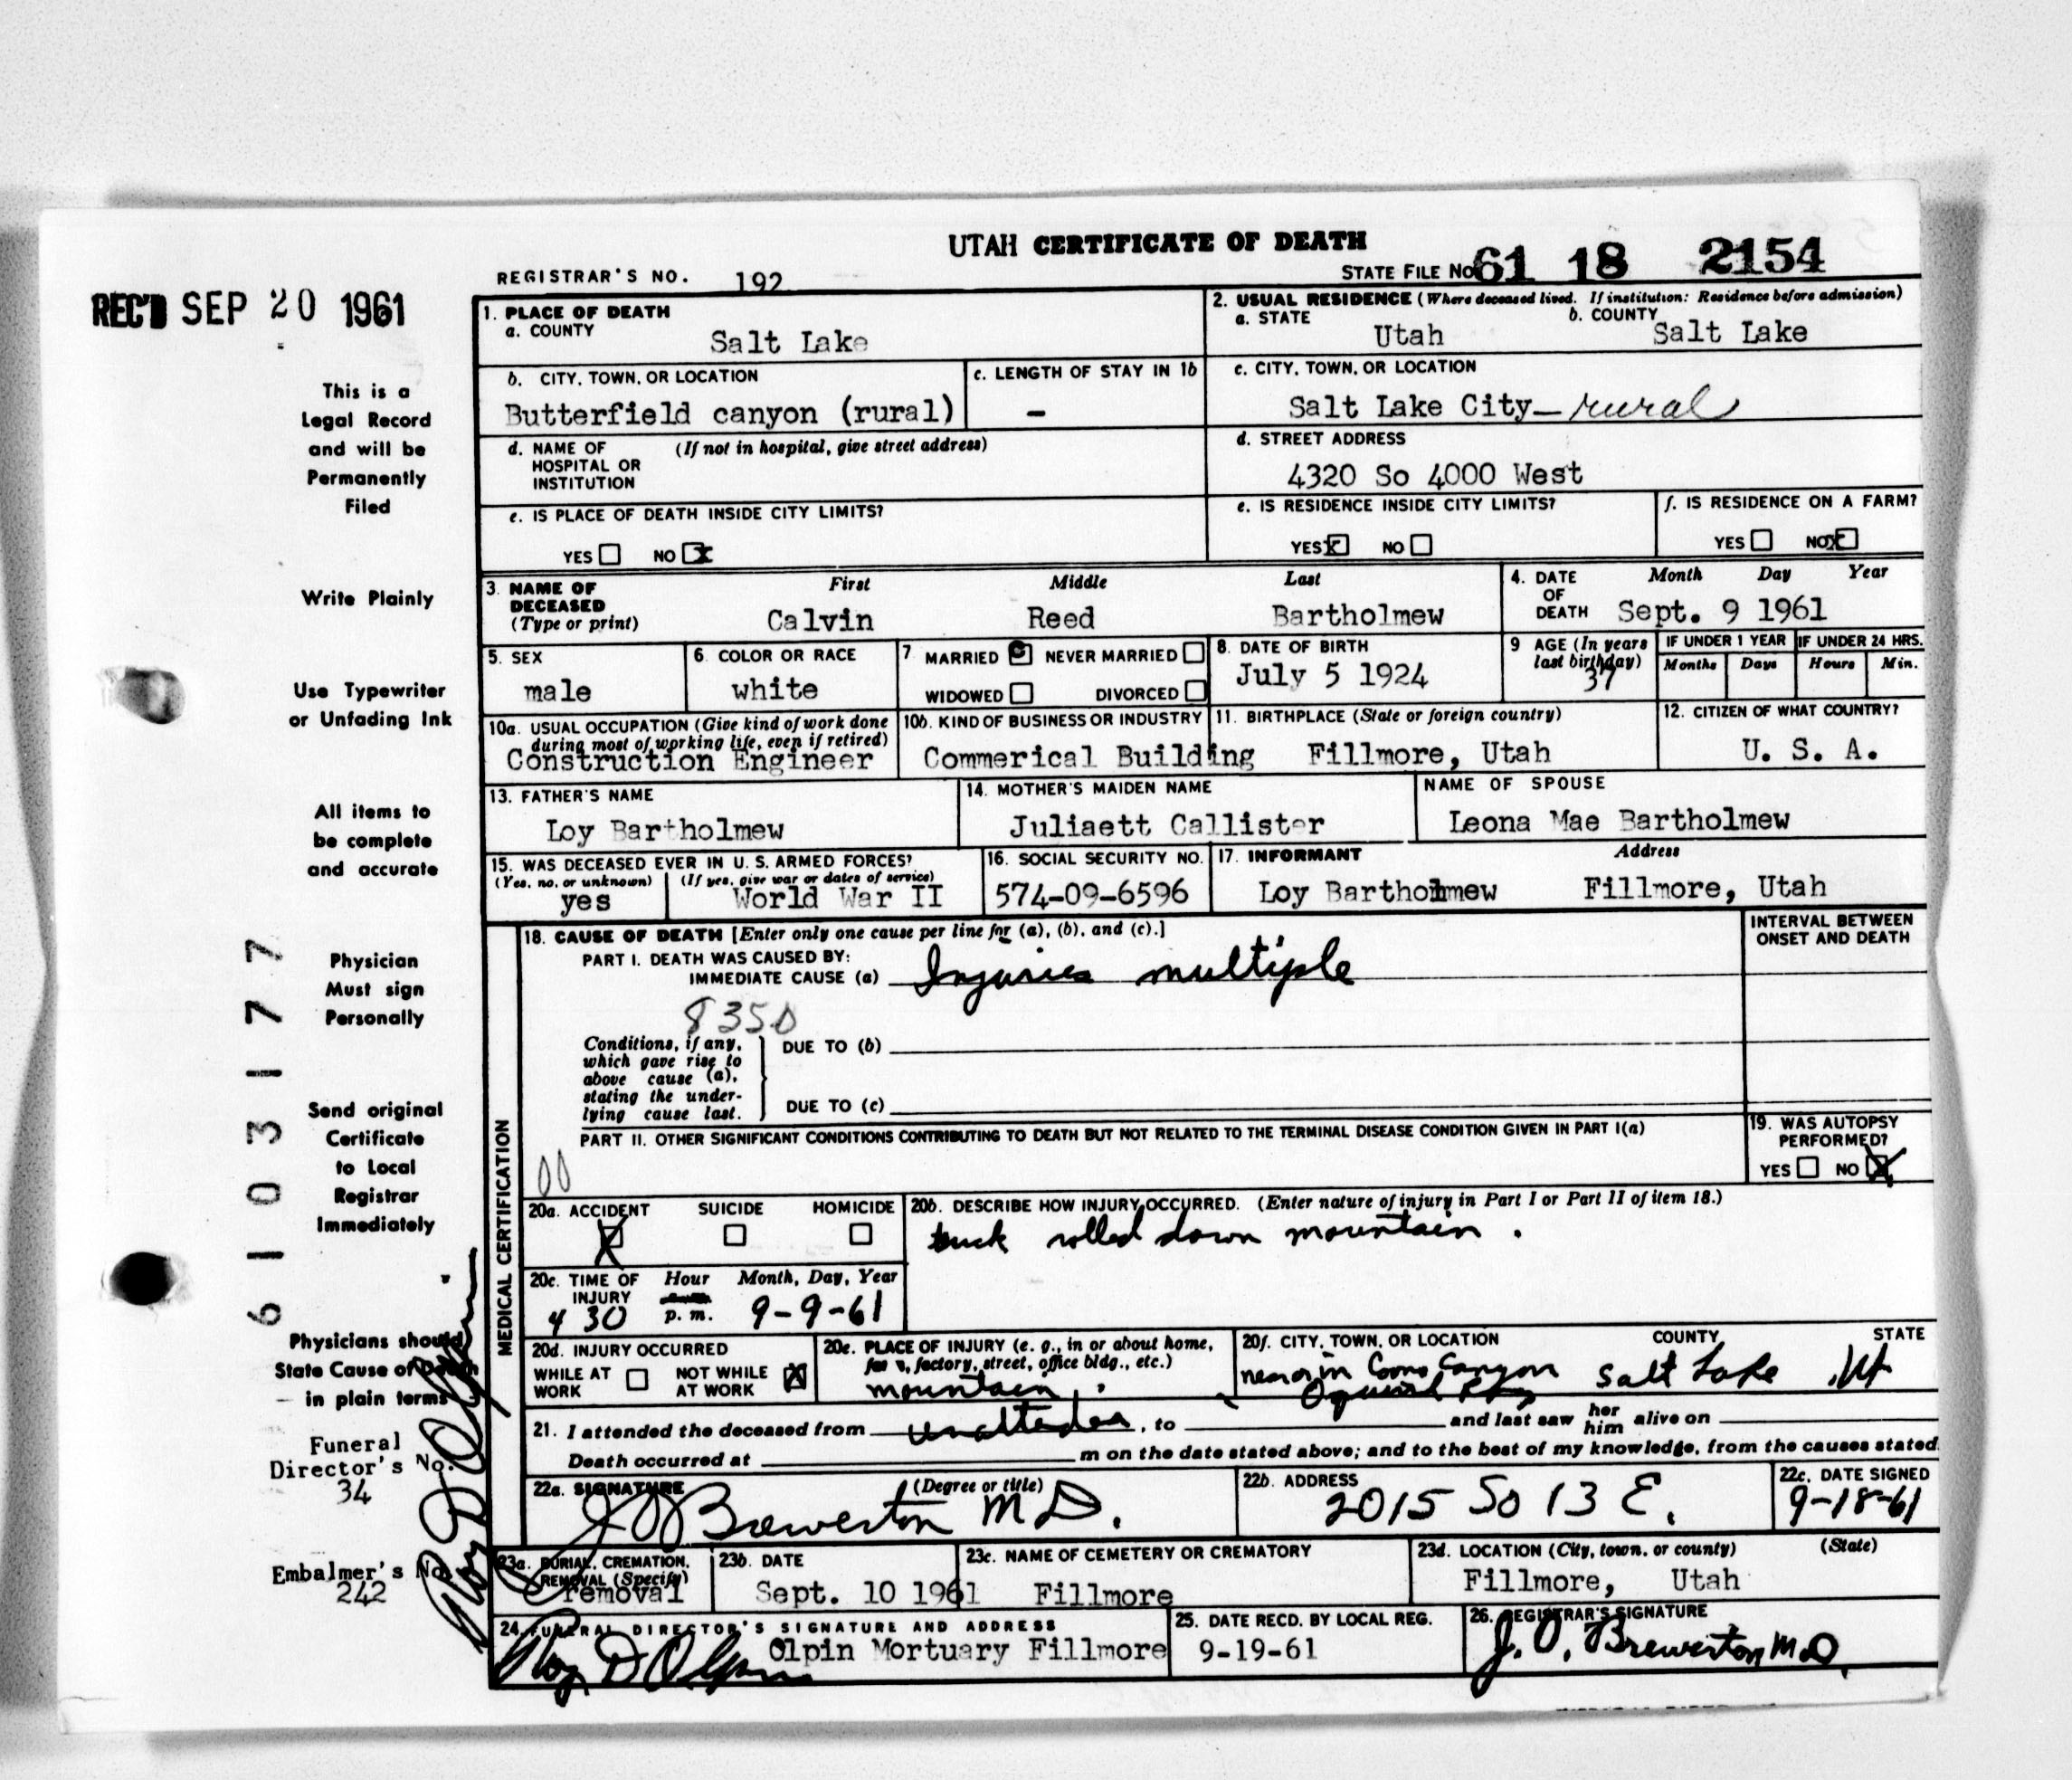 UTAH CERTIFICATE OF DEATH
REGISTRAR'S NO. 192
STATE FILE NO. 61 18 2154
REC'D SEP 20 1961
This is a
Legal Record
and will be
Permanently
Filed
Write Plainly
Use Typewriter
or Unfading Ink
All items to
be complete
and accurate
Physician
Must sign
Personally
Send original
Certificate
to Local
Registrar
Immediately
Physicians should
State Cause of Death
— in plain terms
Funeral
Director's No.
34
Embalmer's No.
242
6103177
1. PLACE OF DEATH
a. COUNTY
Salt Lake
2. USUAL RESIDENCE (Where deceased lived. If institution: Residence before admission)
a. STATE Utah b. COUNTY Salt Lake
b. CITY, TOWN, OR LOCATION
Butterfield canyon (rural)
c. LENGTH OF STAY IN 1b
-
c. CITY, TOWN, OR LOCATION
Salt Lake City— rural
d. NAME OF HOSPITAL OR INSTITUTION (If not in hospital, give street address)
d. STREET ADDRESS
4320 So 4000 West
e. IS PLACE OF DEATH INSIDE CITY LIMITS?
YES NO X
e. IS RESIDENCE INSIDE CITY LIMITS?
YES X NO
f. IS RESIDENCE ON A FARM?
YES NO X
3. NAME OF DECEASED (Type or print)
First Middle Last
Calvin Reed Bartholmew
4. DATE OF DEATH
Month Day Year
Sept. 9 1961
5. SEX
male
6. COLOR OR RACE
white
7 MARRIED NEVER MARRIED
WIDOWED DIVORCED
8. DATE OF BIRTH
July 5 1924
9 AGE (In years last birthday)
37
IF UNDER 1 YEAR
Months Days
IF UNDER 24 HRS.
Hours Min.
10a. USUAL OCCUPATION (Give kind of work done during most of working life, even if retired)
Construction Engineer
10b. KIND OF BUSINESS OR INDUSTRY
Commerical Building
11. BIRTHPLACE (State or foreign country)
Fillmore, Utah
12. CITIZEN OF WHAT COUNTRY?
U. S. A.
13. FATHER'S NAME
Loy Bartholmew
14. MOTHER'S MAIDEN NAME
Juliaett Callister
NAME OF SPOUSE
Leona Mae Bartholmew
15. WAS DECEASED EVER IN U. S. ARMED FORCES?
(Yes, no, or unknown) (If yes, give war or dates of service)
yes World War II
16. SOCIAL SECURITY NO.
574-09-6596
17. INFORMANT Address
Loy Bartholmew Fillmore, Utah
MEDICAL CERTIFICATION
18. CAUSE OF DEATH [Enter only one cause per line for (a), (b), and (c).]
INTERVAL BETWEEN ONSET AND DEATH
PART I. DEATH WAS CAUSED BY:
IMMEDIATE CAUSE (a) Injuries multiple
8350
Conditions, if any,
which gave rise to
above cause (a),
stating the under-
lying cause last.
DUE TO (b)
DUE TO (c)
PART II. OTHER SIGNIFICANT CONDITIONS CONTRIBUTING TO DEATH BUT NOT RELATED TO THE TERMINAL DISEASE CONDITION GIVEN IN PART I(a)
00
19. WAS AUTOPSY PERFORMED?
YES NO X
20a. ACCIDENT SUICIDE HOMICIDE
X
20b. DESCRIBE HOW INJURY OCCURRED. (Enter nature of injury in Part I or Part II of item 18.)
truck rolled down mountain.
20c. TIME OF INJURY Hour Month, Day, Year
4 30 p. m. 9-9-61
20d. INJURY OCCURRED
WHILE AT WORK NOT WHILE AT WORK X
20e. PLACE OF INJURY (e. g., in or about home, farm, factory, street, office bldg., etc.)
mountain.
20f. CITY, TOWN, OR LOCATION COUNTY STATE
Canyon Salt Lake Ut
21. I attended the deceased from unattended, to and last saw her him alive on
Death occurred at m on the date stated above; and to the best of my knowledge, from the causes stated.
22a. SIGNATURE (Degree or title)
J O Brewerton M D.
22b. ADDRESS
2015 So 13 E.
22c. DATE SIGNED
9-18-61
23a. BURIAL, CREMATION, REMOVAL (Specify)
removal
23b. DATE
Sept. 10 1961
23c. NAME OF CEMETERY OR CREMATORY
Fillmore
23d. LOCATION (City, town, or county) (State)
Fillmore, Utah
24. FUNERAL DIRECTOR'S SIGNATURE AND ADDRESS
Roy D Olpin Olpin Mortuary Fillmore
25. DATE RECD. BY LOCAL REG.
9-19-61
26. REGISTRAR'S SIGNATURE
J. O. Brewerton M D.